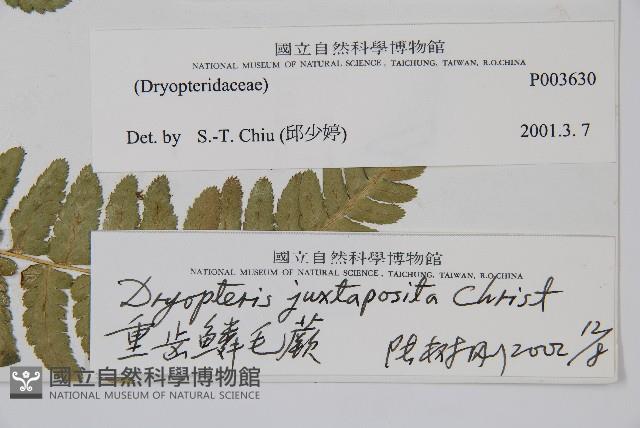 國立自然科學博物館
NATIONAL MUSEUM OF NATURAL SCIENCE, TAICHUNG, TAIWAN, R.O.CHINA
(Dryopteridaceae) P003630
Det. by S.-T. Chiu (邱少婷) 2001.3.7
國立自然科學博物館
NATIONAL MUSEUM OF NATURAL SCIENCE, TAICHUNG, TAIWAN, R.O.CHINA
Dryopteris juxtaposita Christ
重齿鳞毛蕨 陆树刚 2002 12/8
國立自然科學博物館
NATIONAL MUSEUM OF NATURAL SCIENCE